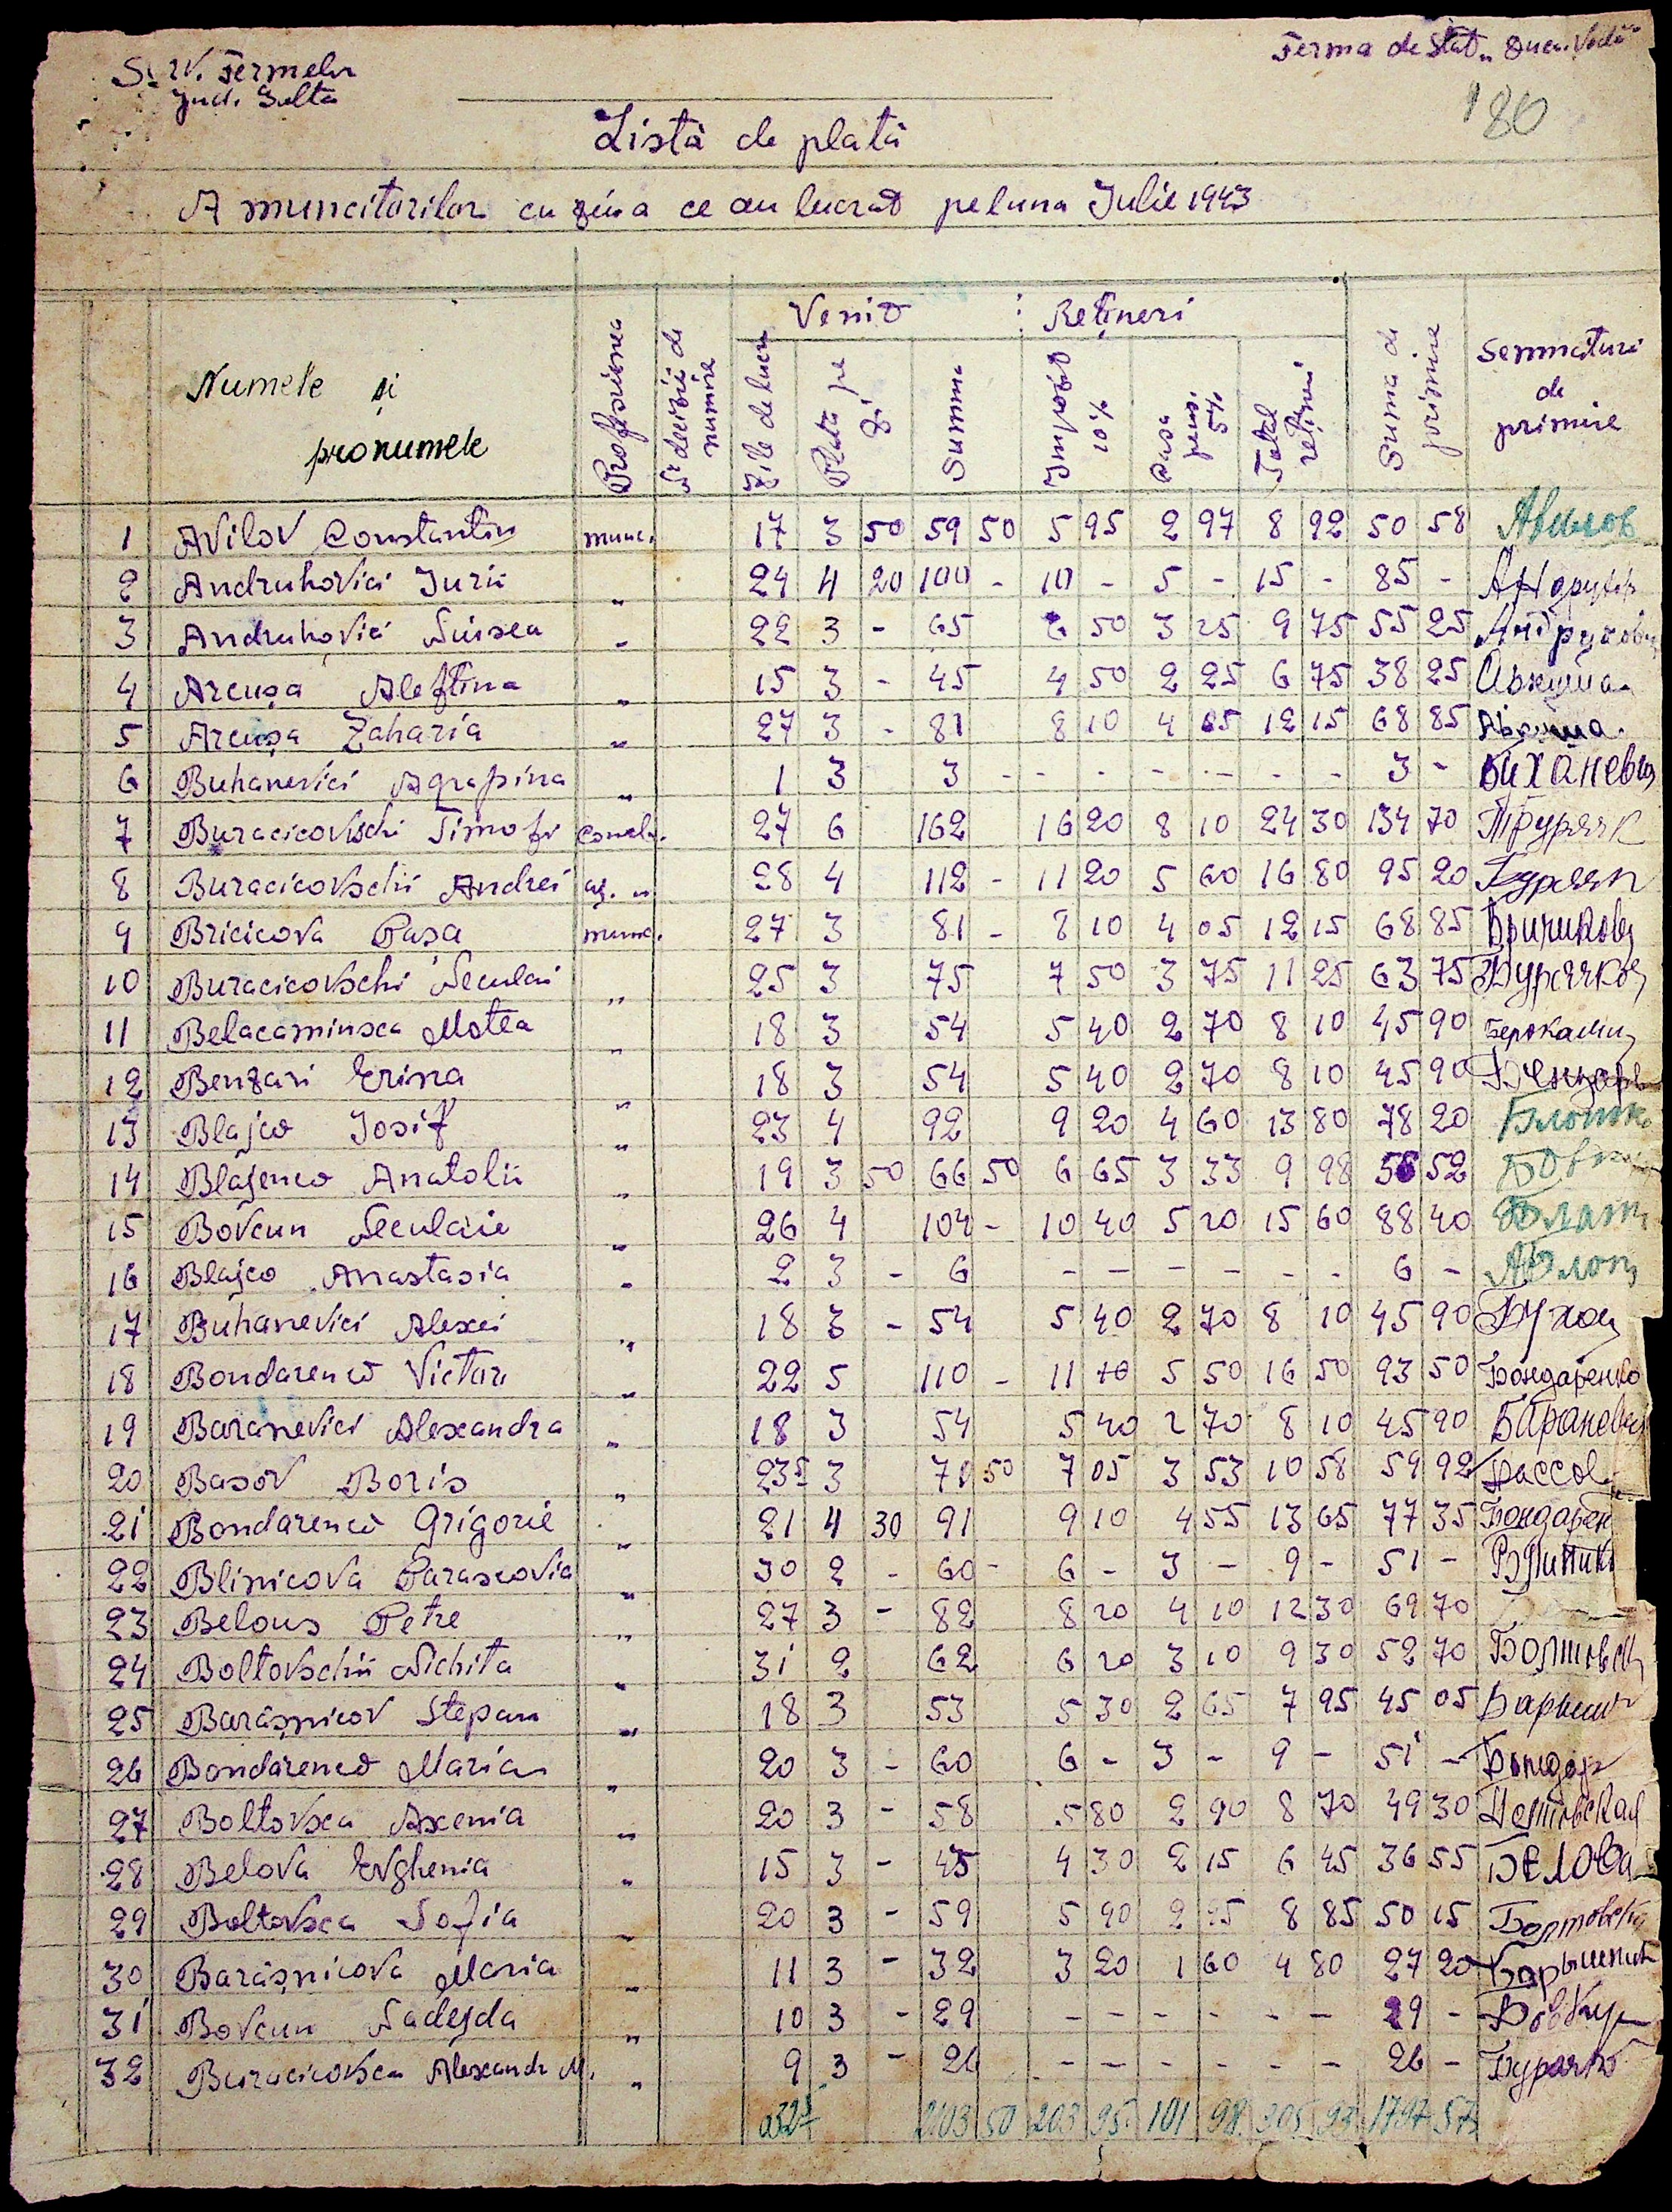 Serv. Fermelor
Jud. Golta
Ferma de Stat „Duca-Vodă"
180
Listă de plată
A muncitorilor cu ziua ce au lucrat pe luna Julie 1943
Numele și pronumele
Profesiunea
Nr deciziei de numire
Venit
Zile de lucru
Plata pe zi
Summa
Rețineri
Impozit 10%
Casa pens. 5%
Total rețineri
Suma de primire
Semnături de primire
1 Avilov Constantin munc. 17 3 50 59 50 5 95 2 97 8 92 50 58 Авилов
2 Andruhovici Iurii „ 24 4 20 100 - 10 - 5 - 15 - 85 -
3 Andruhovici „ 22 3 - 65 6 50 3 25 9 75 55 25 Андрухови
4 Arcușa Aleftina „ 15 3 - 45 4 50 2 25 6 75 38 25
5 Arcușa Zaharia „ 27 3 - 81 8 10 4 05 12 15 68 85
6 Buhanevici Agrapina „ 1 3 3 - - - - - - - 3 - Буханевич
7 Buracicovschi Timofi 27 6 162 16 20 8 10 24 30 134 70
8 Buracicovschi Andrei 28 4 112 - 11 20 5 60 16 80 95 20
9 Bricicova Pașa munc. 27 3 81 - 8 10 4 05 12 15 68 85 Бричикова
10 Buracicovschi Neculai „ 25 3 75 7 50 3 75 11 25 63 75
11 Belacaminsca Motea „ 18 3 54 5 40 2 70 8 10 45 90
12 Benzari Erina „ 18 3 54 5 40 2 70 8 10 45 90 Бензарь
13 Blajco Josif „ 23 4 92 9 20 4 60 13 80 78 20
14 Blajenco Anatolii „ 19 3 50 66 50 6 65 3 33 9 98 56 52
15 Bovcun Neculaie „ 26 4 104 - 10 40 5 20 15 60 88 40
16 Blajco Anastasia „ 2 3 - 6 - - - - - - 6 -
17 Buhanevici Alexei „ 18 3 - 54 5 40 2 70 8 10 45 90
18 Bondarenco Victor „ 22 5 110 - 11 5 50 16 50 93 50 Бондаренко
19 Baranevici Alexandra „ 18 3 54 5 40 2 70 8 10 45 90 Баранович
20 Basov Boris „ 23 5 3 70 50 7 05 3 53 10 58 59 92 Бассов
21 Bondarenco Grigorie „ 21 4 30 91 9 10 4 55 13 65 77 35 Бондарен
22 Blinicova Parascovia „ 30 2 - 60 - 6 - 3 - 9 - 51 -
23 Belous Petre „ 27 3 - 82 8 20 4 10 12 30 69 70
24 Boltovschii Nichita „ 31 2 62 6 20 3 10 9 30 52 70
25 Barâșnicov Stepan „ 18 3 53 5 30 2 65 7 95 45 05
26 Bondarenco Maria „ 20 3 - 60 6 - 3 - 9 - 51 - Бондар
27 Boltovsca Axenia „ 20 3 - 58 5 80 2 90 8 70 49 30
28 Belova Evghenia „ 15 3 - 43 4 30 2 15 6 45 36 55 Белова
29 Boltovsca Sofia „ 20 3 - 59 5 90 2 95 8 85 50 15
30 Barâșnicova Maria „ 11 3 - 32 3 20 1 60 4 80 27 20
31 Bovcun Nadejda „ 10 3 - 29 - - - - - - 29 - Бовкун
32 Buracicovsca Alexandr M. „ 9 3 - 26 - - - - - - 26 -
2103 50 203 95 101 98 305 93 1797 57